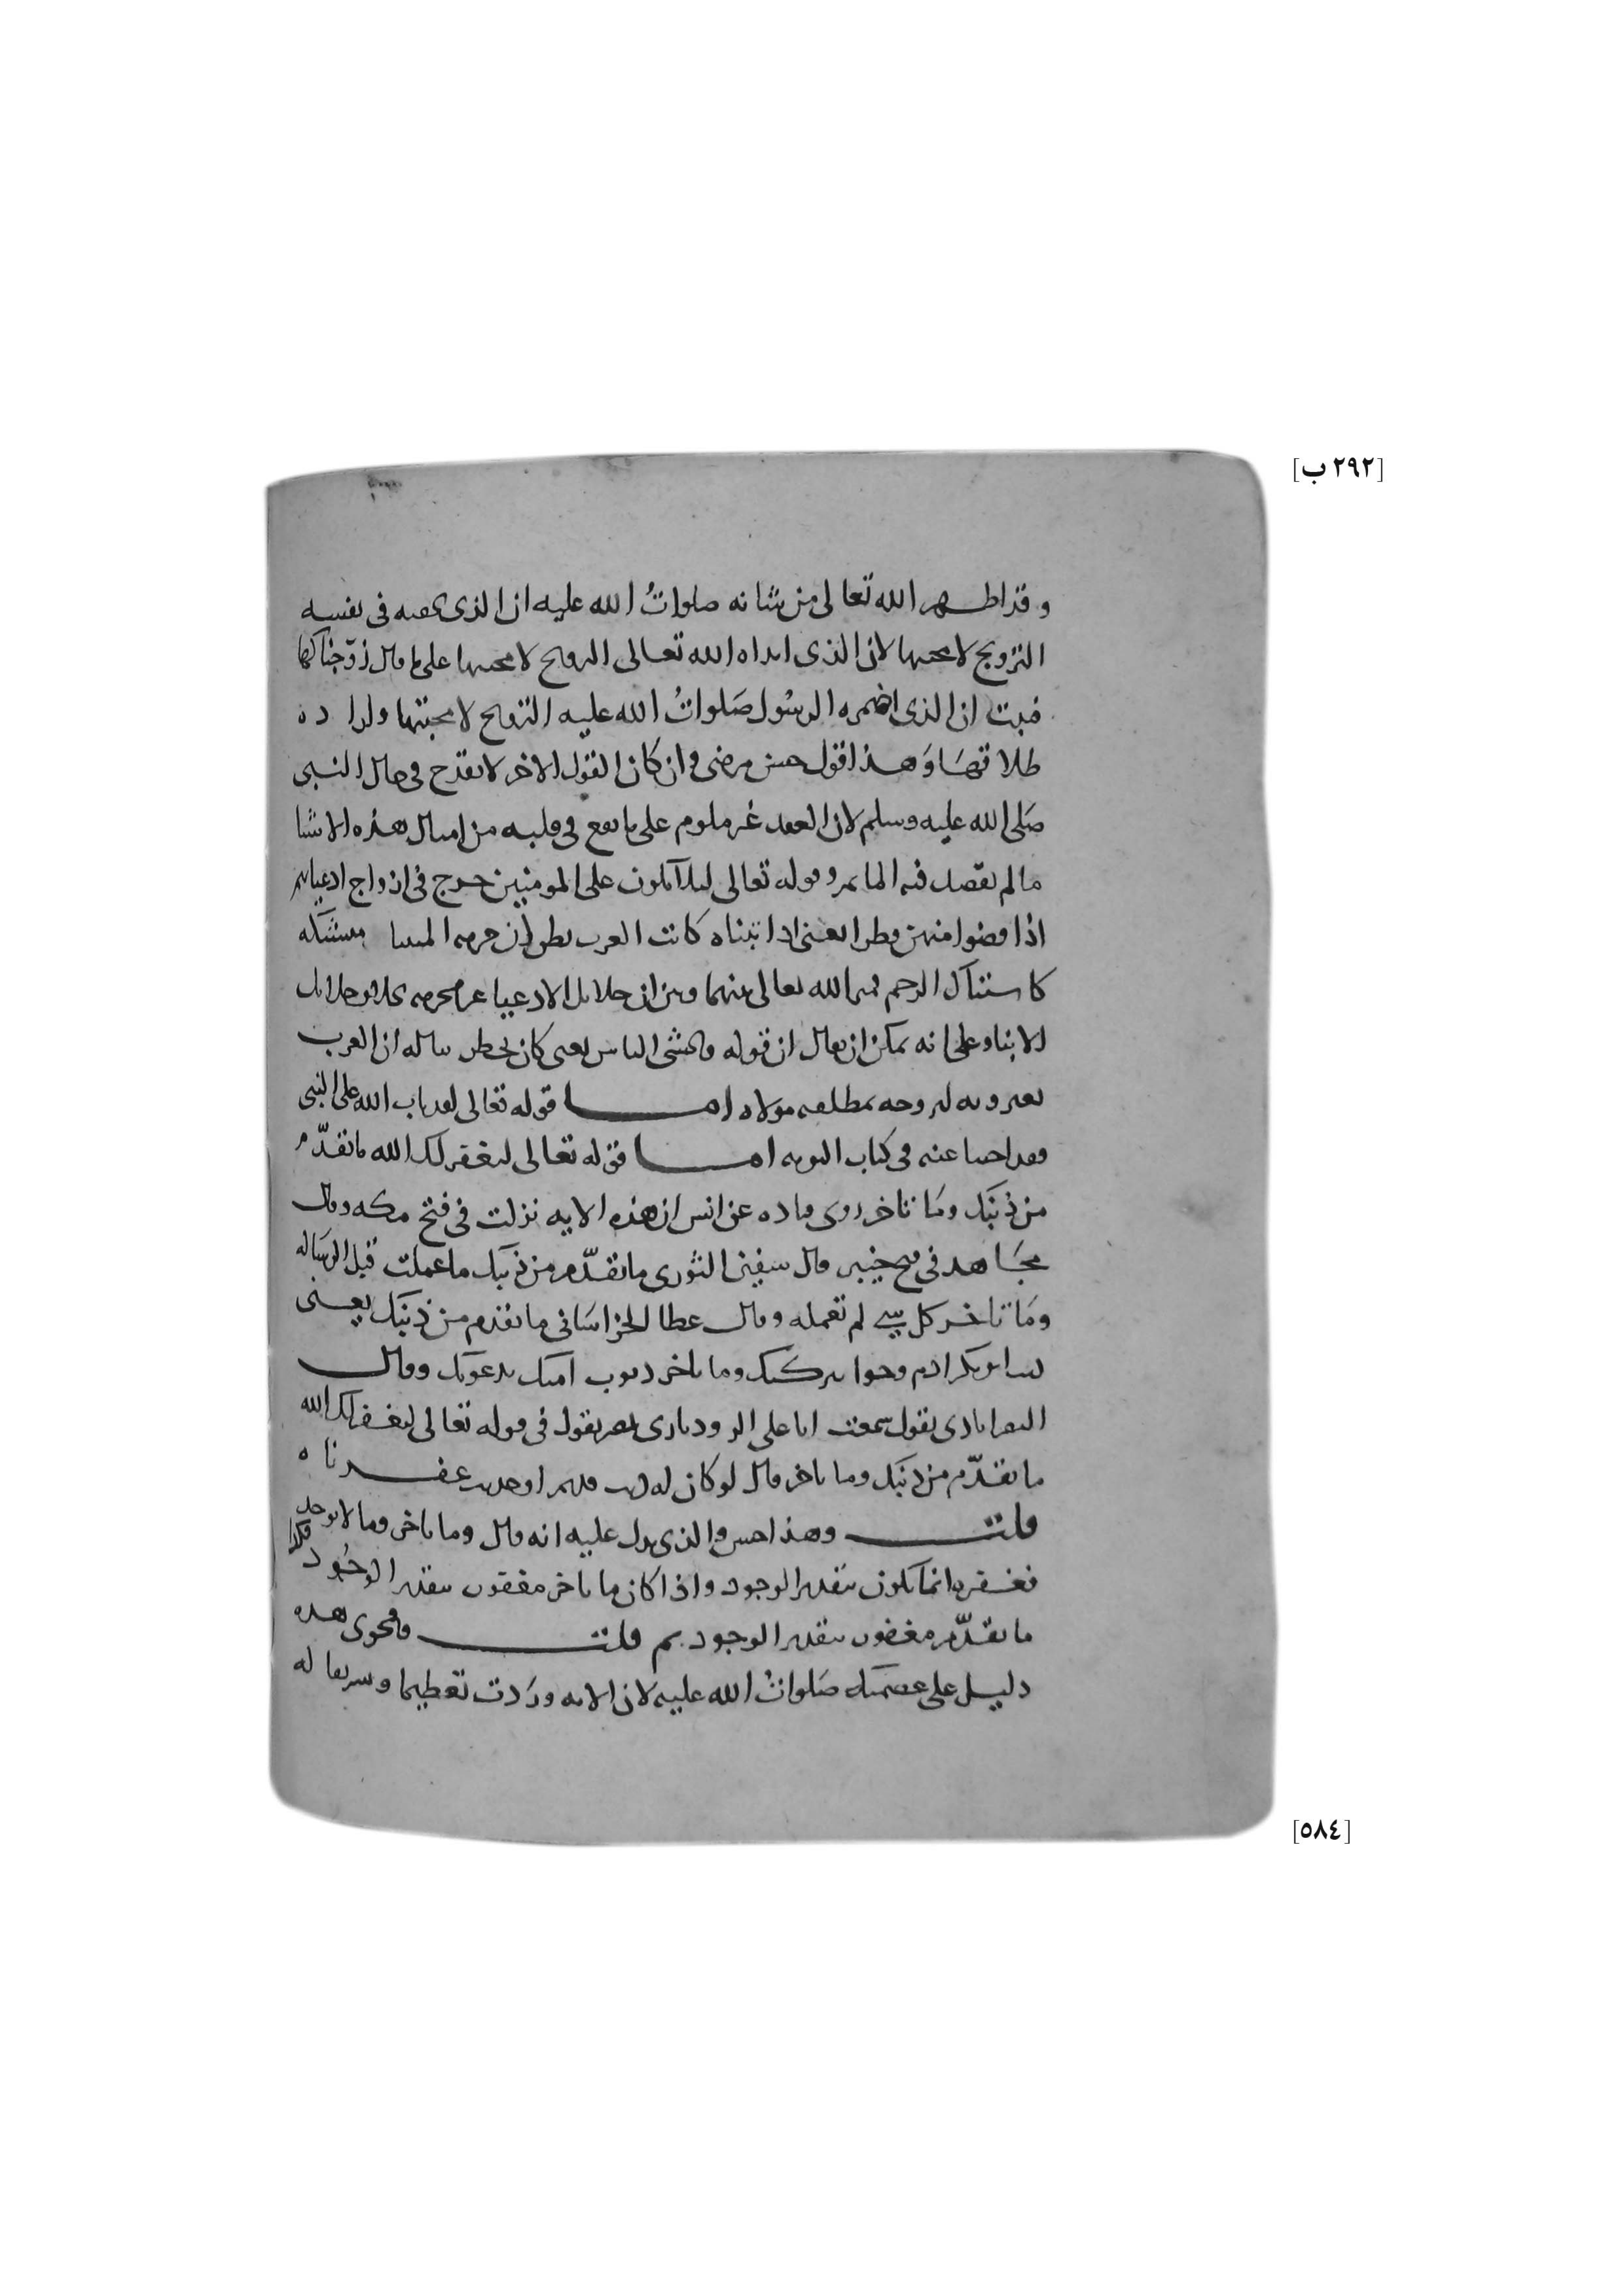 [٢٩٢ ب]
وقد اظهر الله تعالى من شانه صلوات الله عليه ان الذى يخفيه فى نفسه
التزويج لا محبتها لان الذى ابداه الله تعالى التزويج لا محبتها على ما قال زوّجناكها
فثبت ان الذى اضمره الرسول صَلواتُ الله عليه التزويج لا محبتها وارادة
طلاقهَا وَهذا قول حسن مرضى وان كان القول الاخر لا يقدح فى حال النبى
صَلى الله عليه وسلم لان العبد غير ملوم على ما يقع فى قلبه من امثال هذه الاشيا
ما لم يقصد فيه الماثم وقوله تعالى ليلا يكون على المومنين حرج فى ازواج ادعيايهم
اذا قضوا منهن وطرا يعنى اذا تبناه كانت العرب يظن ان حرمه المتبنا مشتبكه
كاشتباك الرحم فميز الله تعالى بينهما وبين ان حلايل الادعيا غير محرمه بخلاف حلايل
الابنا وعلى انه يمكن ان يقال ان قوله وتخشى الناس يعنى كان يخطر بباله ان العرب
يعيرونه لتزوجه بمطلقه مولاه اما قوله تعالى لقد تاب الله على النبى
وقد اجبنا عنه فى كتاب التوبه اما قوله تعالى ليغفر لك الله ما تقدّم
من ذنبك ومَا تاخر روى قتاده عن انس ان هذه الايه نزلت فى فتح مكه وقال
مجَاهد فى فتح خيبر قال سفين الثورى ما تقدّم من ذنبك ما عملت قبل الرسَاله
ومَا تاخر كل شى لم تعمله وقال عطا الخراسَانى ما تقدم من ذنبك يعنى
ذنب ابويك ادم وحوا ببركتك وما تاخر ذنوب امتك بدعوتك وقال
النصراباذى يقول سمعت ابا على الروذبارى بمصر يقول فى قوله تعالى ليغفر لك الله
ما تقدّم من ذنبك وما تاخر قال لو كان لك ذنب قديم او حديث غفرناه
قلت وهذا احسن والذى يدل عليه انه قال وما تاخر وما لا يوجد
فغفره انما يكون بتقدير الوجود واذا كان ما تاخر مغفور بتقدير الوجُود فكذا
ما تقدّم مغفور بتقدير الوجود ثم قلت وفحوى هذه
دليل على عصمته صَلواتُ الله عليه لان الايه ورَدت تعظيما وتشريفا له
[٥٨٤]